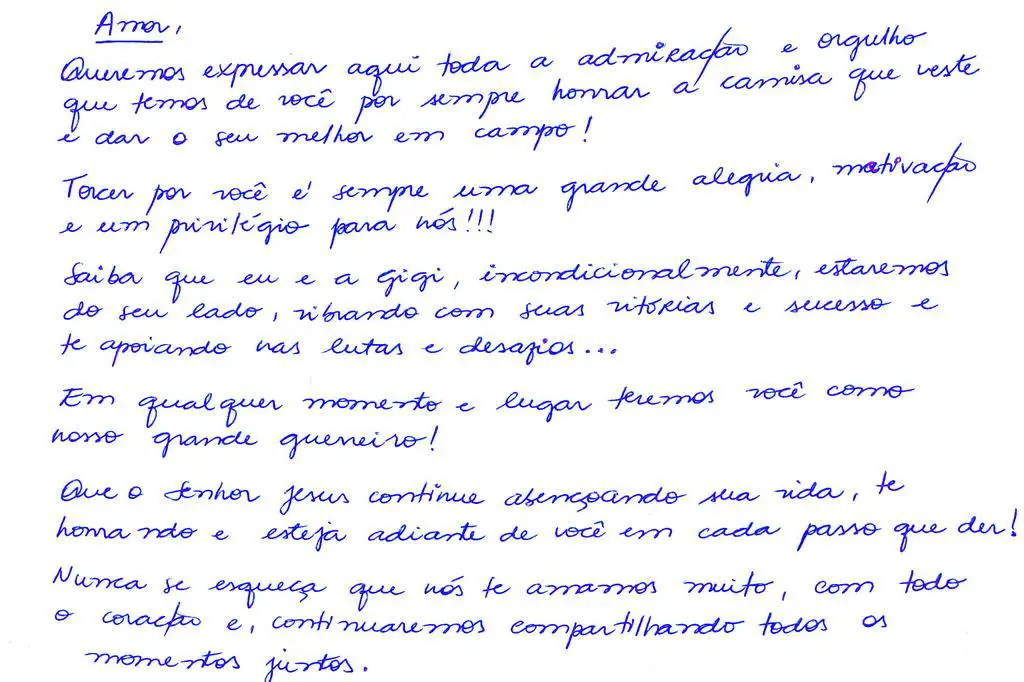 Amor,
Queremos expressar aqui toda a admiração e orgulho
que temos de você por sempre honrar a camisa que veste
e dar o seu melhor em campo!
Torcer por você é sempre uma grande alegria, motivação
e um privilégio para nós!!!
Saiba que eu e a Gigi, incondicionalmente, estaremos
do seu lado, vibrando com suas vitórias e sucesso e
te apoiando nas lutas e desafios...
Em qualquer momento e lugar teremos você como
nosso grande guerreiro!
Que o Senhor Jesus continue abençoando sua vida, te
honrando e esteja adiante de você em cada passo que der!
Nunca se esqueça que nós te amamos muito, com todo
o coração e, continuaremos compartilhando todos os
momentos juntos.